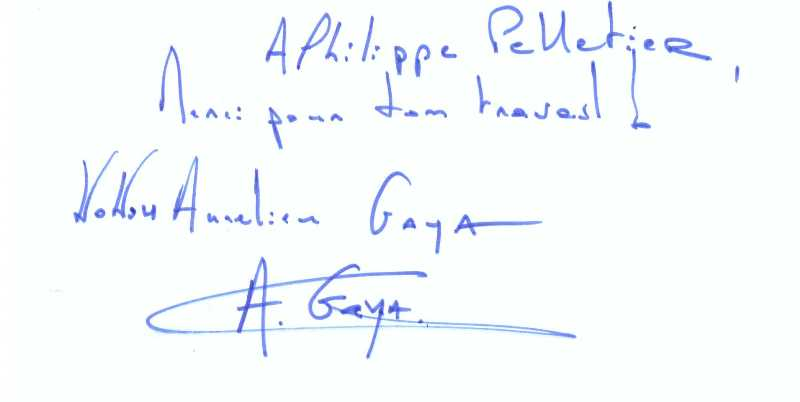 A Philippe Pelletier,
Merci pour ton travail !
Aurelien Gaya
A. Gaya.